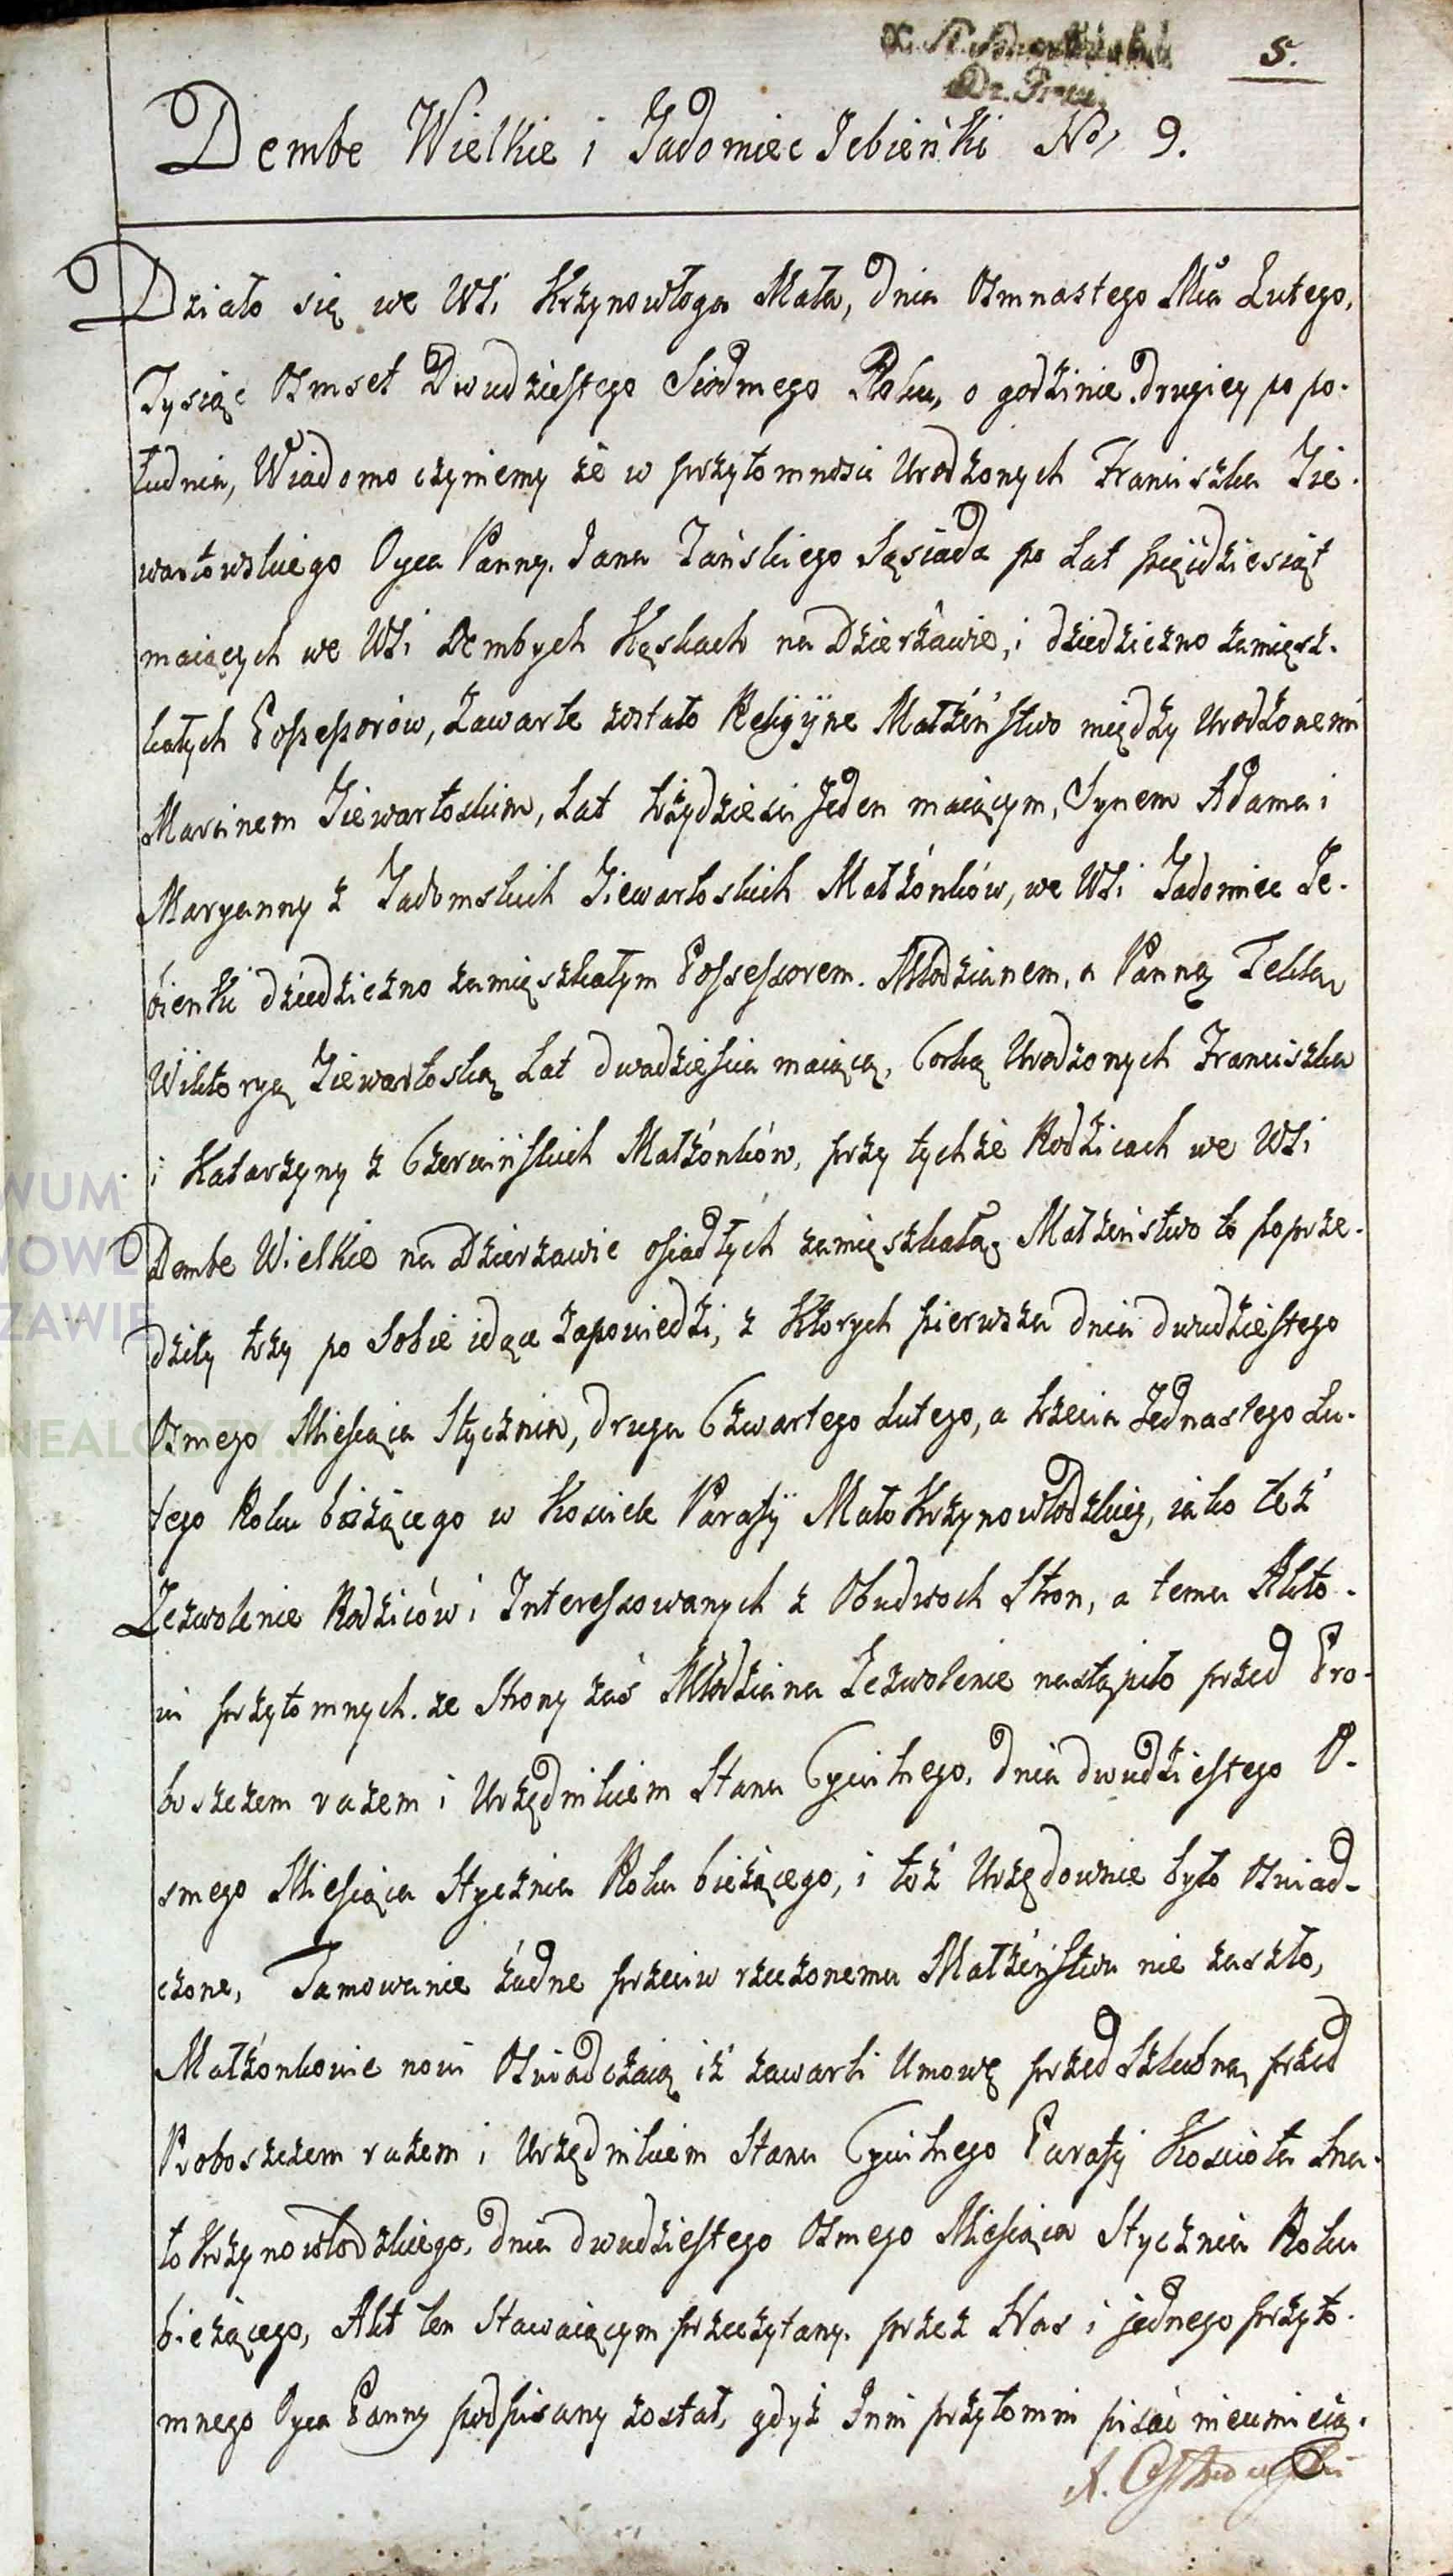 5.
Dembe Wielkie i Zadomiec Zebieńki No, 9.
Działo się we WSi Krzynowłoga Mała, dnia Osmnastego Mca Lutego,
Tysiąc Osmset Dwudziestego Siodmego Roku, o godzinie drugiey po po-
łudniu, Wiadomo czyniemy że w przytomnosci Urodzonych Franciszka Zie-
wartowskiego Oyca Panny, Jana Tańskiego Sąsiada po Lat pięćdziesiąt
maiących we WSi Dembych Kęskach na Dzierżawie, i dziedziczno zamięsz-
kałych Possessorów, Zawarte zostało Religiyne Małżeństwo między Urodzonemi
Marcinem Ziewartoskim, Lat trzydziesci Jeden maiącym, Synem Adama i
Maryanny z Zadomskich Ziewartoskich Małżonków, we WSi Zadomiec Ze-
bienki dziedziczno zamięszkałym Possessorem. Młodzianem, a Panną Teklą
Wiktoryą Ziewartoską Lat dwadziescia maiącą, Corką Urodzonych Franciszka
i Katarzyny z Czerwińskich Małżonków, przy tychże Rodzicach we WSi
Dembe Wielkie na Dzierżawie osiadłych zamięszkałą. Małżeństwo to poprze-
dziły trzy po Sobie idące Zapowiedzi, z Ktorych pierwsza dnia dwudziestego
Osmego Miesiąca Stycznia, druga Czwartego Lutego, a trzecia Jednastego Lu-
tego Roku bieżącego w Kosciele Parafÿ Mało Krzynowłodzkiey, iako też
Zezwolenie Rodziców i Interessowanych z Obudwoch Stron, a temu Akto-
wi przytomnych. ze Strony zaś Młodziana Zezwolenie nastąpiło przed Pro-
boszczem razem i Urzędnikiem Stanu Cywilnego, dnia dwudziestego O-
smego Miesiąca Stycznia Roku bieżącego, i toż Urzędownie było Oswiad-
czone, Tamowanie żadne przeciw rzeczonemu Małżeństwu nie zaszło,
Małżonkowie nowi Oswiadczaią iż zawarli Umowę przedSzlubną przed
Proboszczem razem i Urzędnikiem Stanu Cywilnego Parafÿ Kosciola Ma-
ło Krzynowłodzkiego, dnia dwudziestego Osmego Miesiąca Stycznia Roku
bieżącego, Akt ten Stawaiącym przeczytany. przez Nas i jednego przyto-
mnego Oyca Panny podpisany został, gdyż Inni przytomni pisać nieumieią.
WUM
ZAWIE